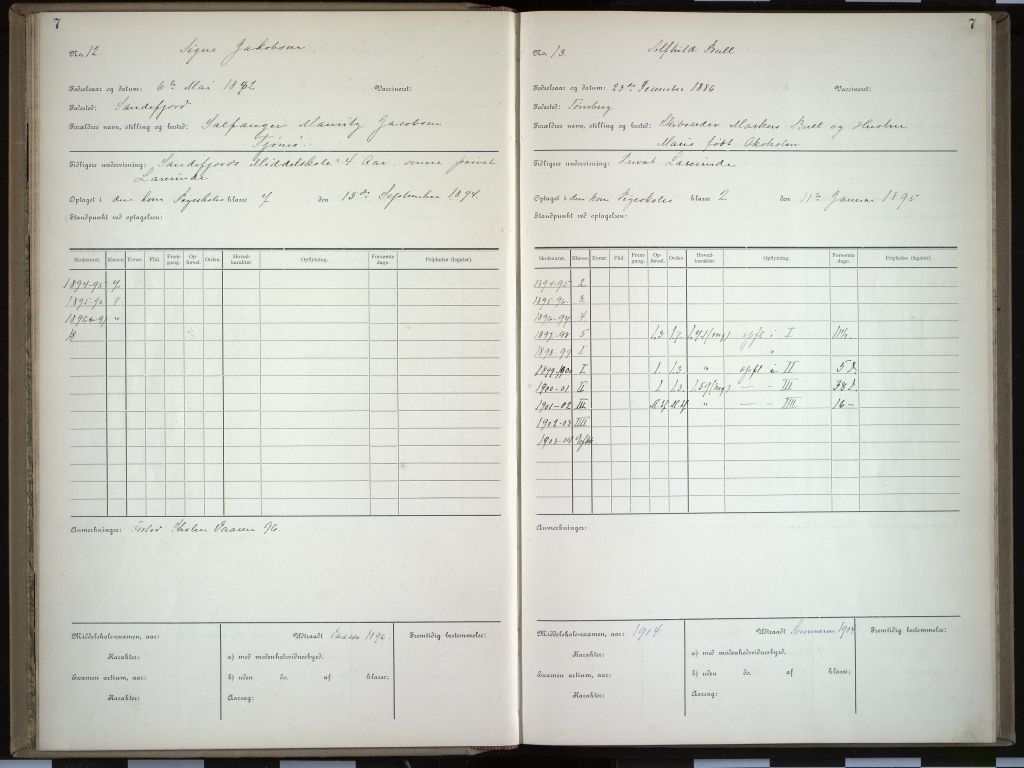 7
No. 12. Signe Jakobsen
Fødselsaar og datum: 6te Mai 1882 Vaccineret:
Fødested: Sandefjord
Forældres navn, stilling og bosted: Sælfanger Mauritz Jacobsen
Tjømø.
Tidligere undervisning: Sandefjords Middelskole 4 Aar, senere privat
Lærerinde
Optaget i den kom. Pigeskoles klasse 7 den 15de September 1894.
Standpunkt ved optagelsen:
Skoleaaret. Klasse. Evner. Flid. Fremgang. Opførsel. Orden. Hovedkarakter. Opflytning. Forsømte dage. Fripladse (legater).
1894-95 7.
1895-96 8.
1896-97 "
Anmerkninger: Forlod Skolen Vaaren 96.
Middelskole-examen, aar: Udtraadt Vaaren 1896. Fremtidig bestemmelse:
Karakter: a) med modenhedsvidnesbyrd.
Examen artium, aar: b) uden do. af klasse:
Karakter: Aarsag:
7
No. 13. Alfhild Bull
Fødselsaar og datum: 23de December 1886 Vaccineret:
Fødested: Tønsberg
Forældres navn, stilling og bosted: Skibsreder Markus Bull og Hustru
Marie født
Tidligere undervisning: Privat Lærerinde
Optaget i den kom. Pigeskoles klasse 2 den 11te Januar 1895
Standpunkt ved optagelsen:
Skoleaaret. Klasse. Evner. Flid. Fremgang. Opførsel. Orden. Hovedkarakter. Opflytning. Forsømte dage. Fripladse (legater).
1894-95 2.
1895-96. 3.
1896-97 4
1897-98 5 1.3 1.7 opfl i I
1898-99 I "
1899-1900 I 1. 1.3. " opfl i II 5 d.
1900-01 II 1 1.3. 1.59 (mg) — - III 38 d.
1901-02 III M.tf. M.tf " — - IIII 16 -
1902-03 IIII
1903-04
Anmerkninger:
Middelskole-examen, aar: 1904. Udtraadt Sommeren 1904 Fremtidig bestemmelse:
Karakter: a) med modenhedsvidnesbyrd.
Examen artium, aar: b) uden do. af klasse:
Karakter: Aarsag: